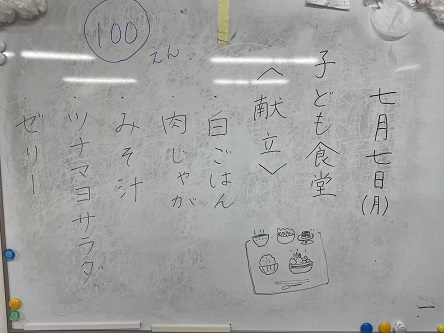 七月七日(月)
子ども食堂
〈献立〉
・白ごはん
・肉じゃが
・みそ汁
・ツナマヨサラダ
・ゼリー
100
えん